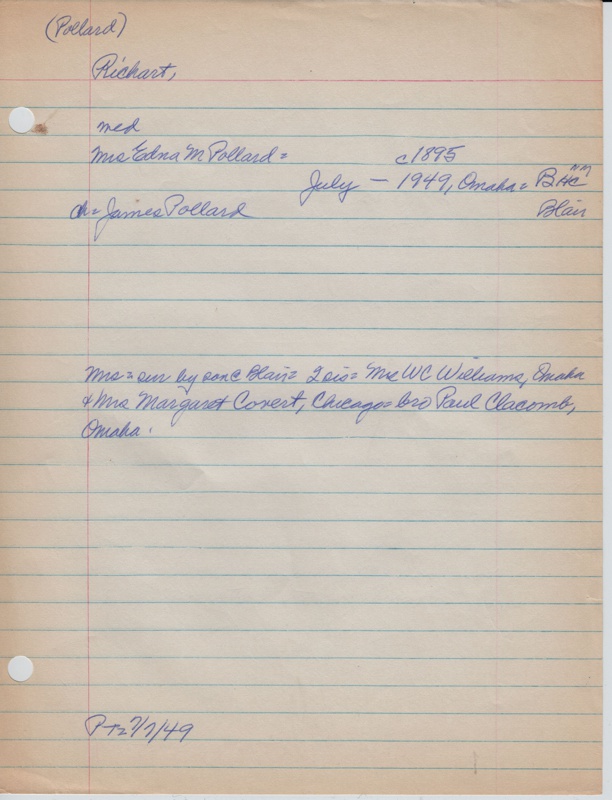 (Pollard)
Richart,
med
Mrs Edna M Pollard =
c1895
July — 1949, Omaha = B HC
Blair
ch = James Pollard
Mrs = sur by son @ Blair = 2 sis = Mrs WC Williams, Omaha
& Mrs Margaret Covert, Chicago = bro Paul Clacomb,
Omaha.
P-T= 7/7/49